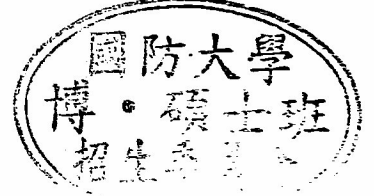 國防大學
博・碩士班
招生委員